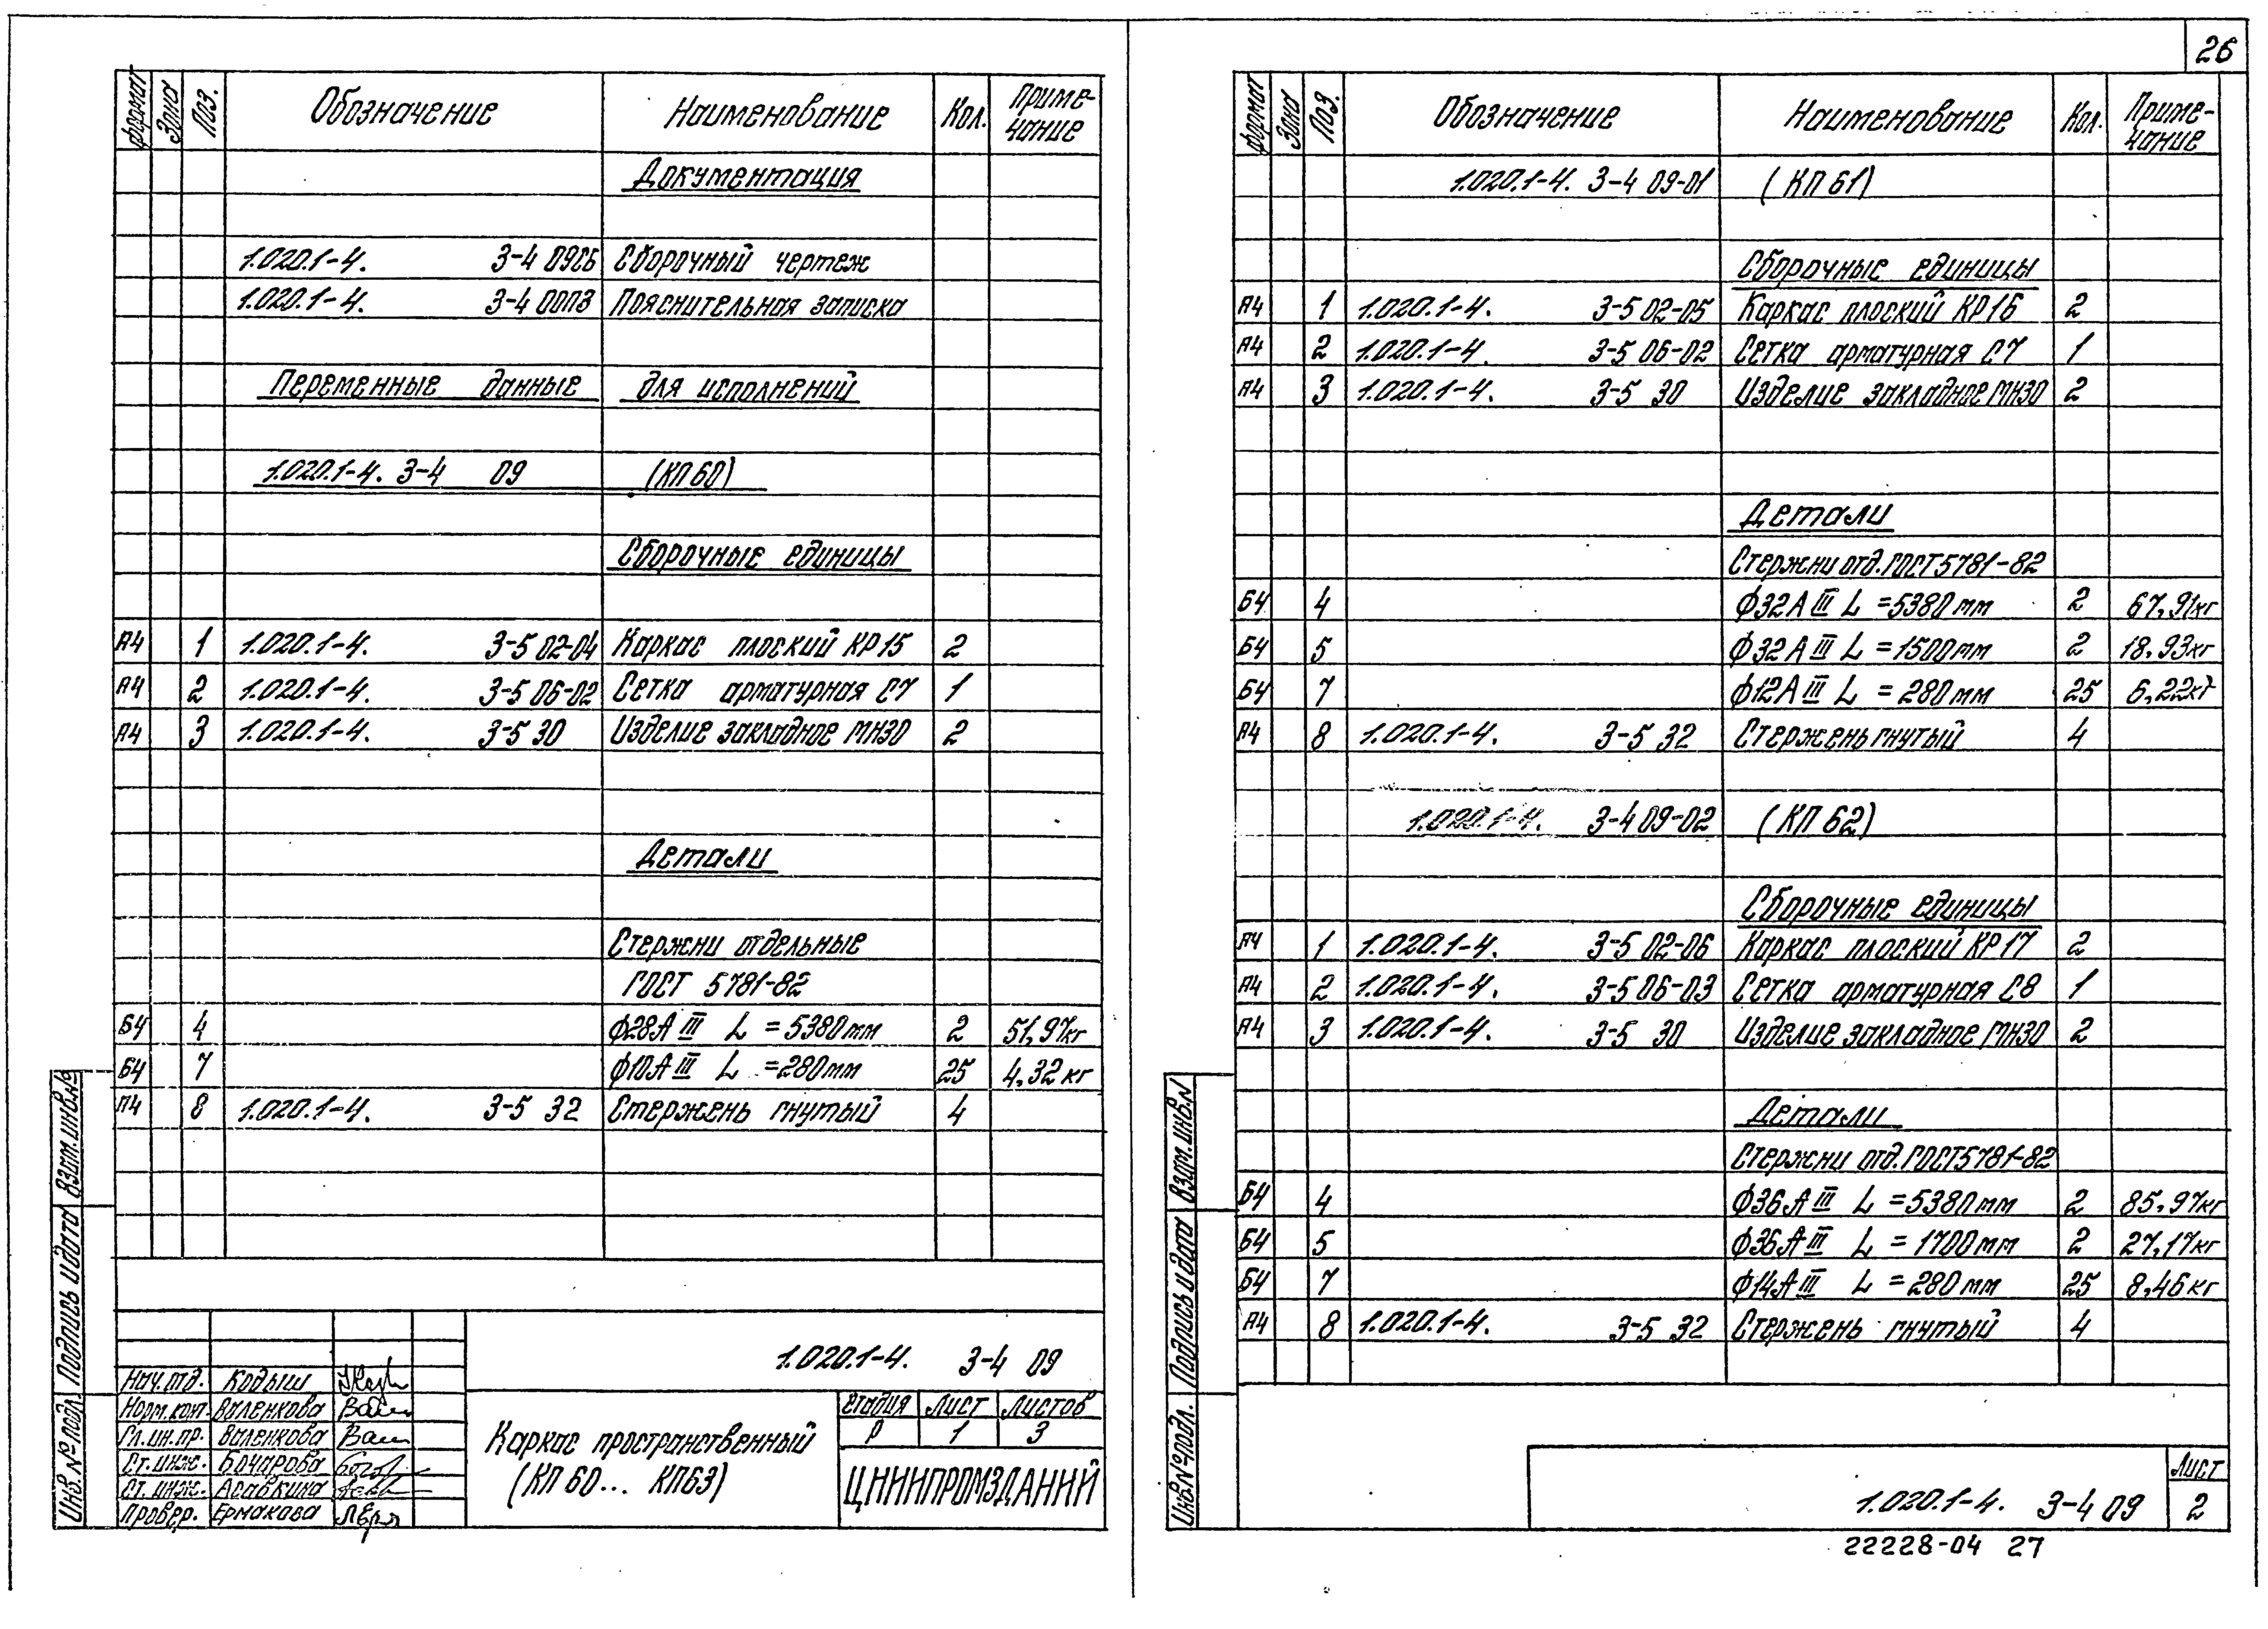 26
Формат Зона Поз. Обозначение Наименование Кол. Приме-
чание
Документация
1.020.1-4. 3-4 09СБ Сборочный чертеж
1.020.1-4. 3-4 00ПЗ Пояснительная записка
Переменные данные для исполнений
1.020.1-4. 3-4 09 (КП 60)
Сборочные единицы
А4 1 1.020.1-4. 3-5 02-04 Каркас плоский КР15 2
А4 2 1.020.1-4. 3-5 06-02 Сетка арматурная С7 1
А4 3 1.020.1-4. 3-5 30 Изделие закладное МН30 2
Детали
Стержни отдельные
ГОСТ 5781-82
Б4 4 ф28А III L = 5380 мм 2 51,97 кг
Б4 7 ф10А III L = 280 мм 25 4,32 кг
А4 8 1.020.1-4. 3-5 32 Стержень гнутый 4
1.020.1-4. 3-4 09
Нач.отд. Кодыш
Норм.кон. Виленкова
Гл.ин.пр. Виленкова
Ст.инж. Бочарова
Ст.инж. Асавкина
Провер. Ермакова
Каркас пространственный
(КП 60... КП63)
Стадия Лист Листов
Р 1 3
ЦНИИПРОМЗДАНИЙ
Инв.№ подл. Подпись и дата Взам.инв.№
Формат Зона Поз. Обозначение Наименование Кол. Приме-
чание
1.020.1-4. 3-4 09-01 (КП 61)
Сборочные единицы
А4 1 1.020.1-4. 3-5 02-05 Каркас плоский КР16 2
А4 2 1.020.1-4. 3-5 06-02 Сетка арматурная С7 1
А4 3 1.020.1-4. 3-5 30 Изделие закладное МН30 2
Детали
Стержни отд. ГОСТ 5781-82
Б4 4 ф32А III L = 5380 мм 2 67,91 кг
Б4 5 ф32А III L = 1500 мм 2 18,93 кг
Б4 7 ф12А III L = 280 мм 25 6,22 кг
А4 8 1.020.1-4. 3-5 32 Стержень гнутый 4
1.020.1-4. 3-4 09-02 (КП 62)
Сборочные единицы
А4 1 1.020.1-4. 3-5 02-06 Каркас плоский КР17 2
А4 2 1.020.1-4. 3-5 06-03 Сетка арматурная С8 1
А4 3 1.020.1-4. 3-5 30 Изделие закладное МН30 2
Детали
Стержни отд. ГОСТ 5781-82
Б4 4 ф36А III L = 5380 мм 2 85,97 кг
Б4 5 ф36А III L = 1700 мм 2 27,17 кг
Б4 7 ф14А III L = 280 мм 25 8,46 кг
А4 8 1.020.1-4. 3-5 32 Стержень гнутый 4
Инв.№ подл. Подпись и дата Взам.инв.№
1.020.1-4. 3-4 09
Лист
2
22228-04 27